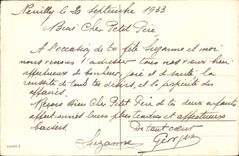 Neuilly le 2 Septembre 1933
Bien Cher Petit Père
A l'occasion de ta fête Suzanne et moi
nous venons t'adresser tous nos vœux bien
affectueux de bonheur, joie et de santé la
réussite de tous tes désirs, et la prospérité des
affaires.
Reçois Bien Cher Petit Père de tes deux enfants
affectionnés leurs plus tendres et affectueux
baisers
Du tout cœur
Suzanne Georges